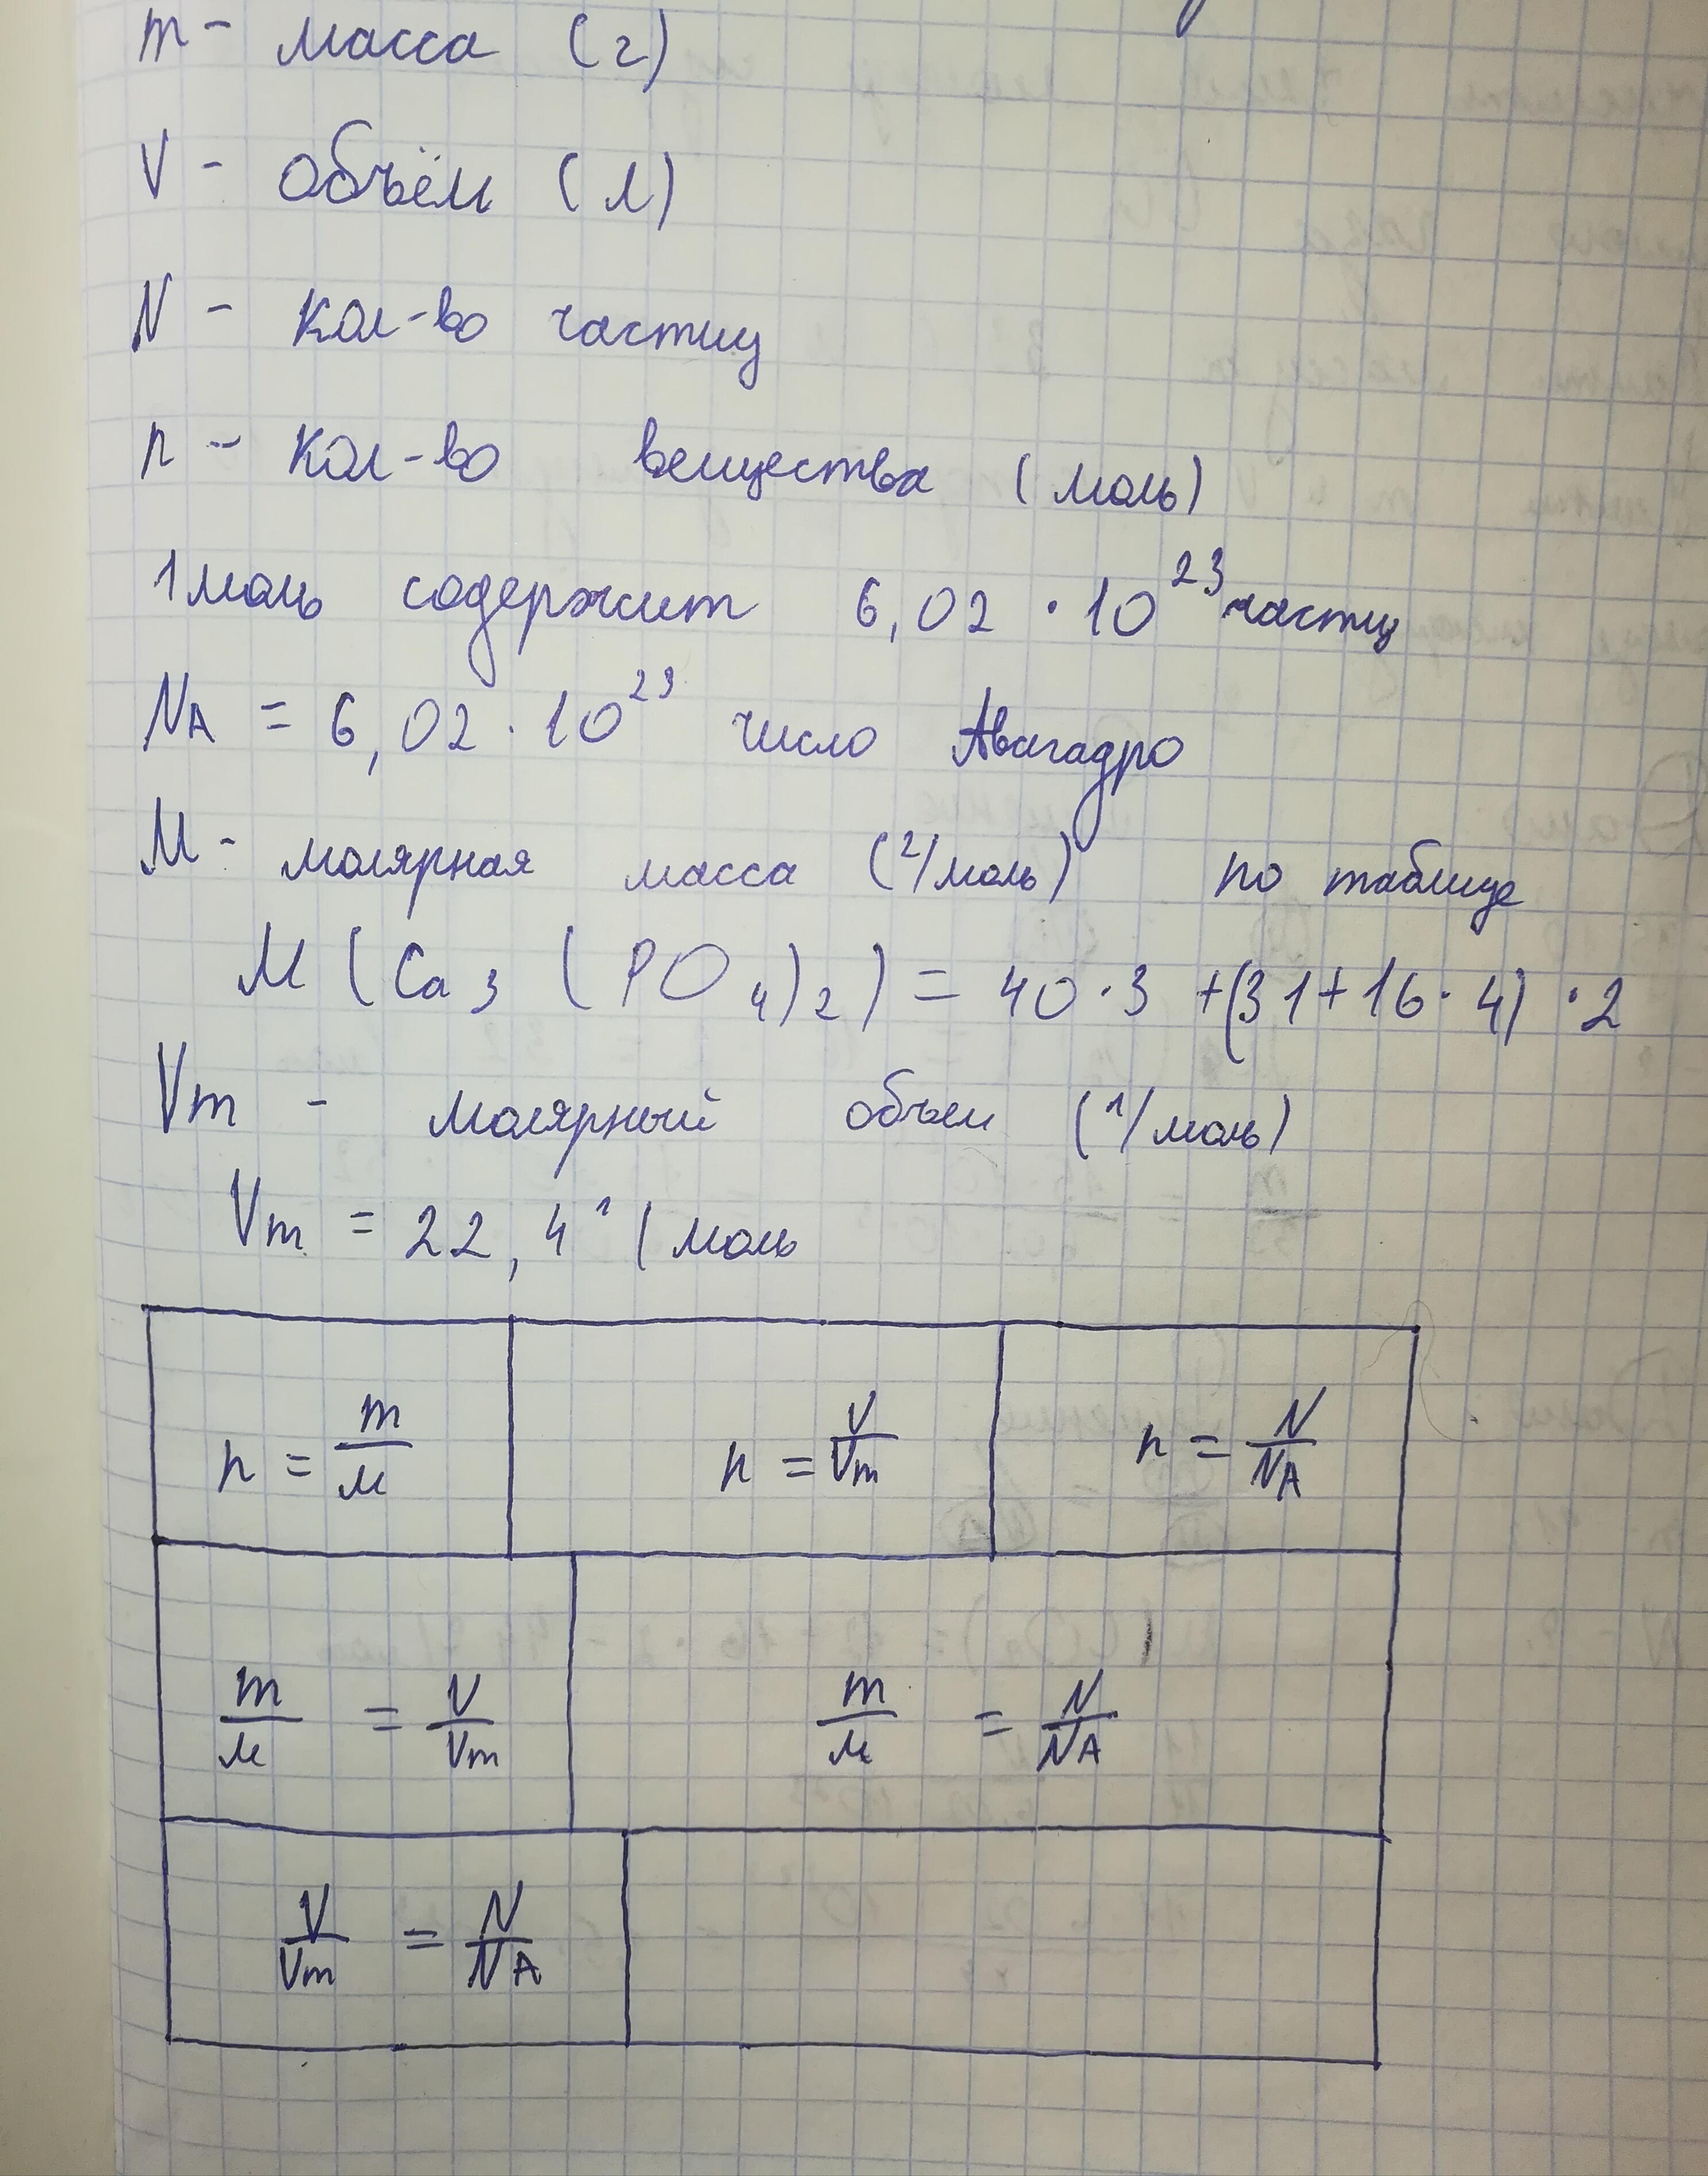 m - масса (г)
V - объём (л)
N - кол-во частиц
n - кол-во вещества (моль)
1 моль содержит 6,02 · 10²³ частиц
Nᴀ = 6,02 · 10²³ число Авагадро
M - молярная масса (г/моль) по таблице
M (Ca₃ (PO₄)₂) = 40 · 3 + (31 + 16 · 4) · 2
Vm - молярный объем (л/моль)
Vm = 22,4 л/моль
n = m/M n = V/Vm n = N/Nᴀ
m/M = V/Vm m/M = N/Nᴀ
V/Vm = N/Nᴀ